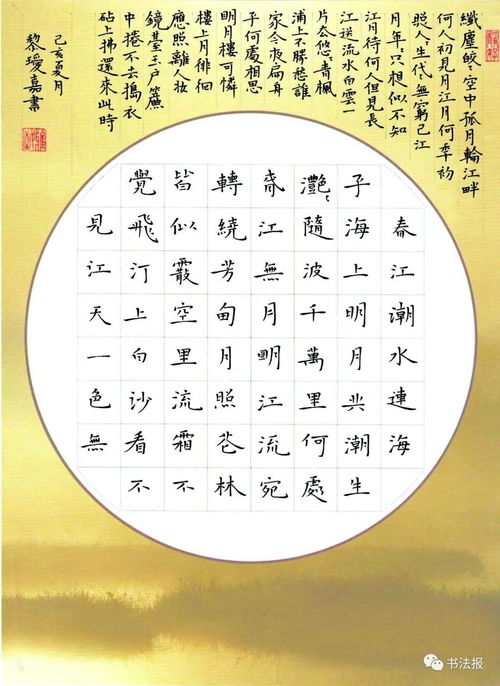 春江潮水連海
平海上明月共潮生
灩〻隨波千萬里何處
春江無月明江流宛
轉繞芳甸月照花林
皆似霰空里流霜不
覺飛汀上白沙看不
見江天一色無
纖塵皎〻空中孤月輪江畔
何人初見月江月何年初
照人〻生代〻無窮已江
月年〻只相似不知
江月待何人但見長
江送流水白雲一
片去悠〻青楓
浦上不勝愁誰
家今夜扁舟
子何處相思
明月樓可憐
樓上月徘徊
應照離人妝
鏡臺玉戶簾
中捲不去搗衣
砧上拂還來此時
己亥夏月
黎璦嘉書
书法报